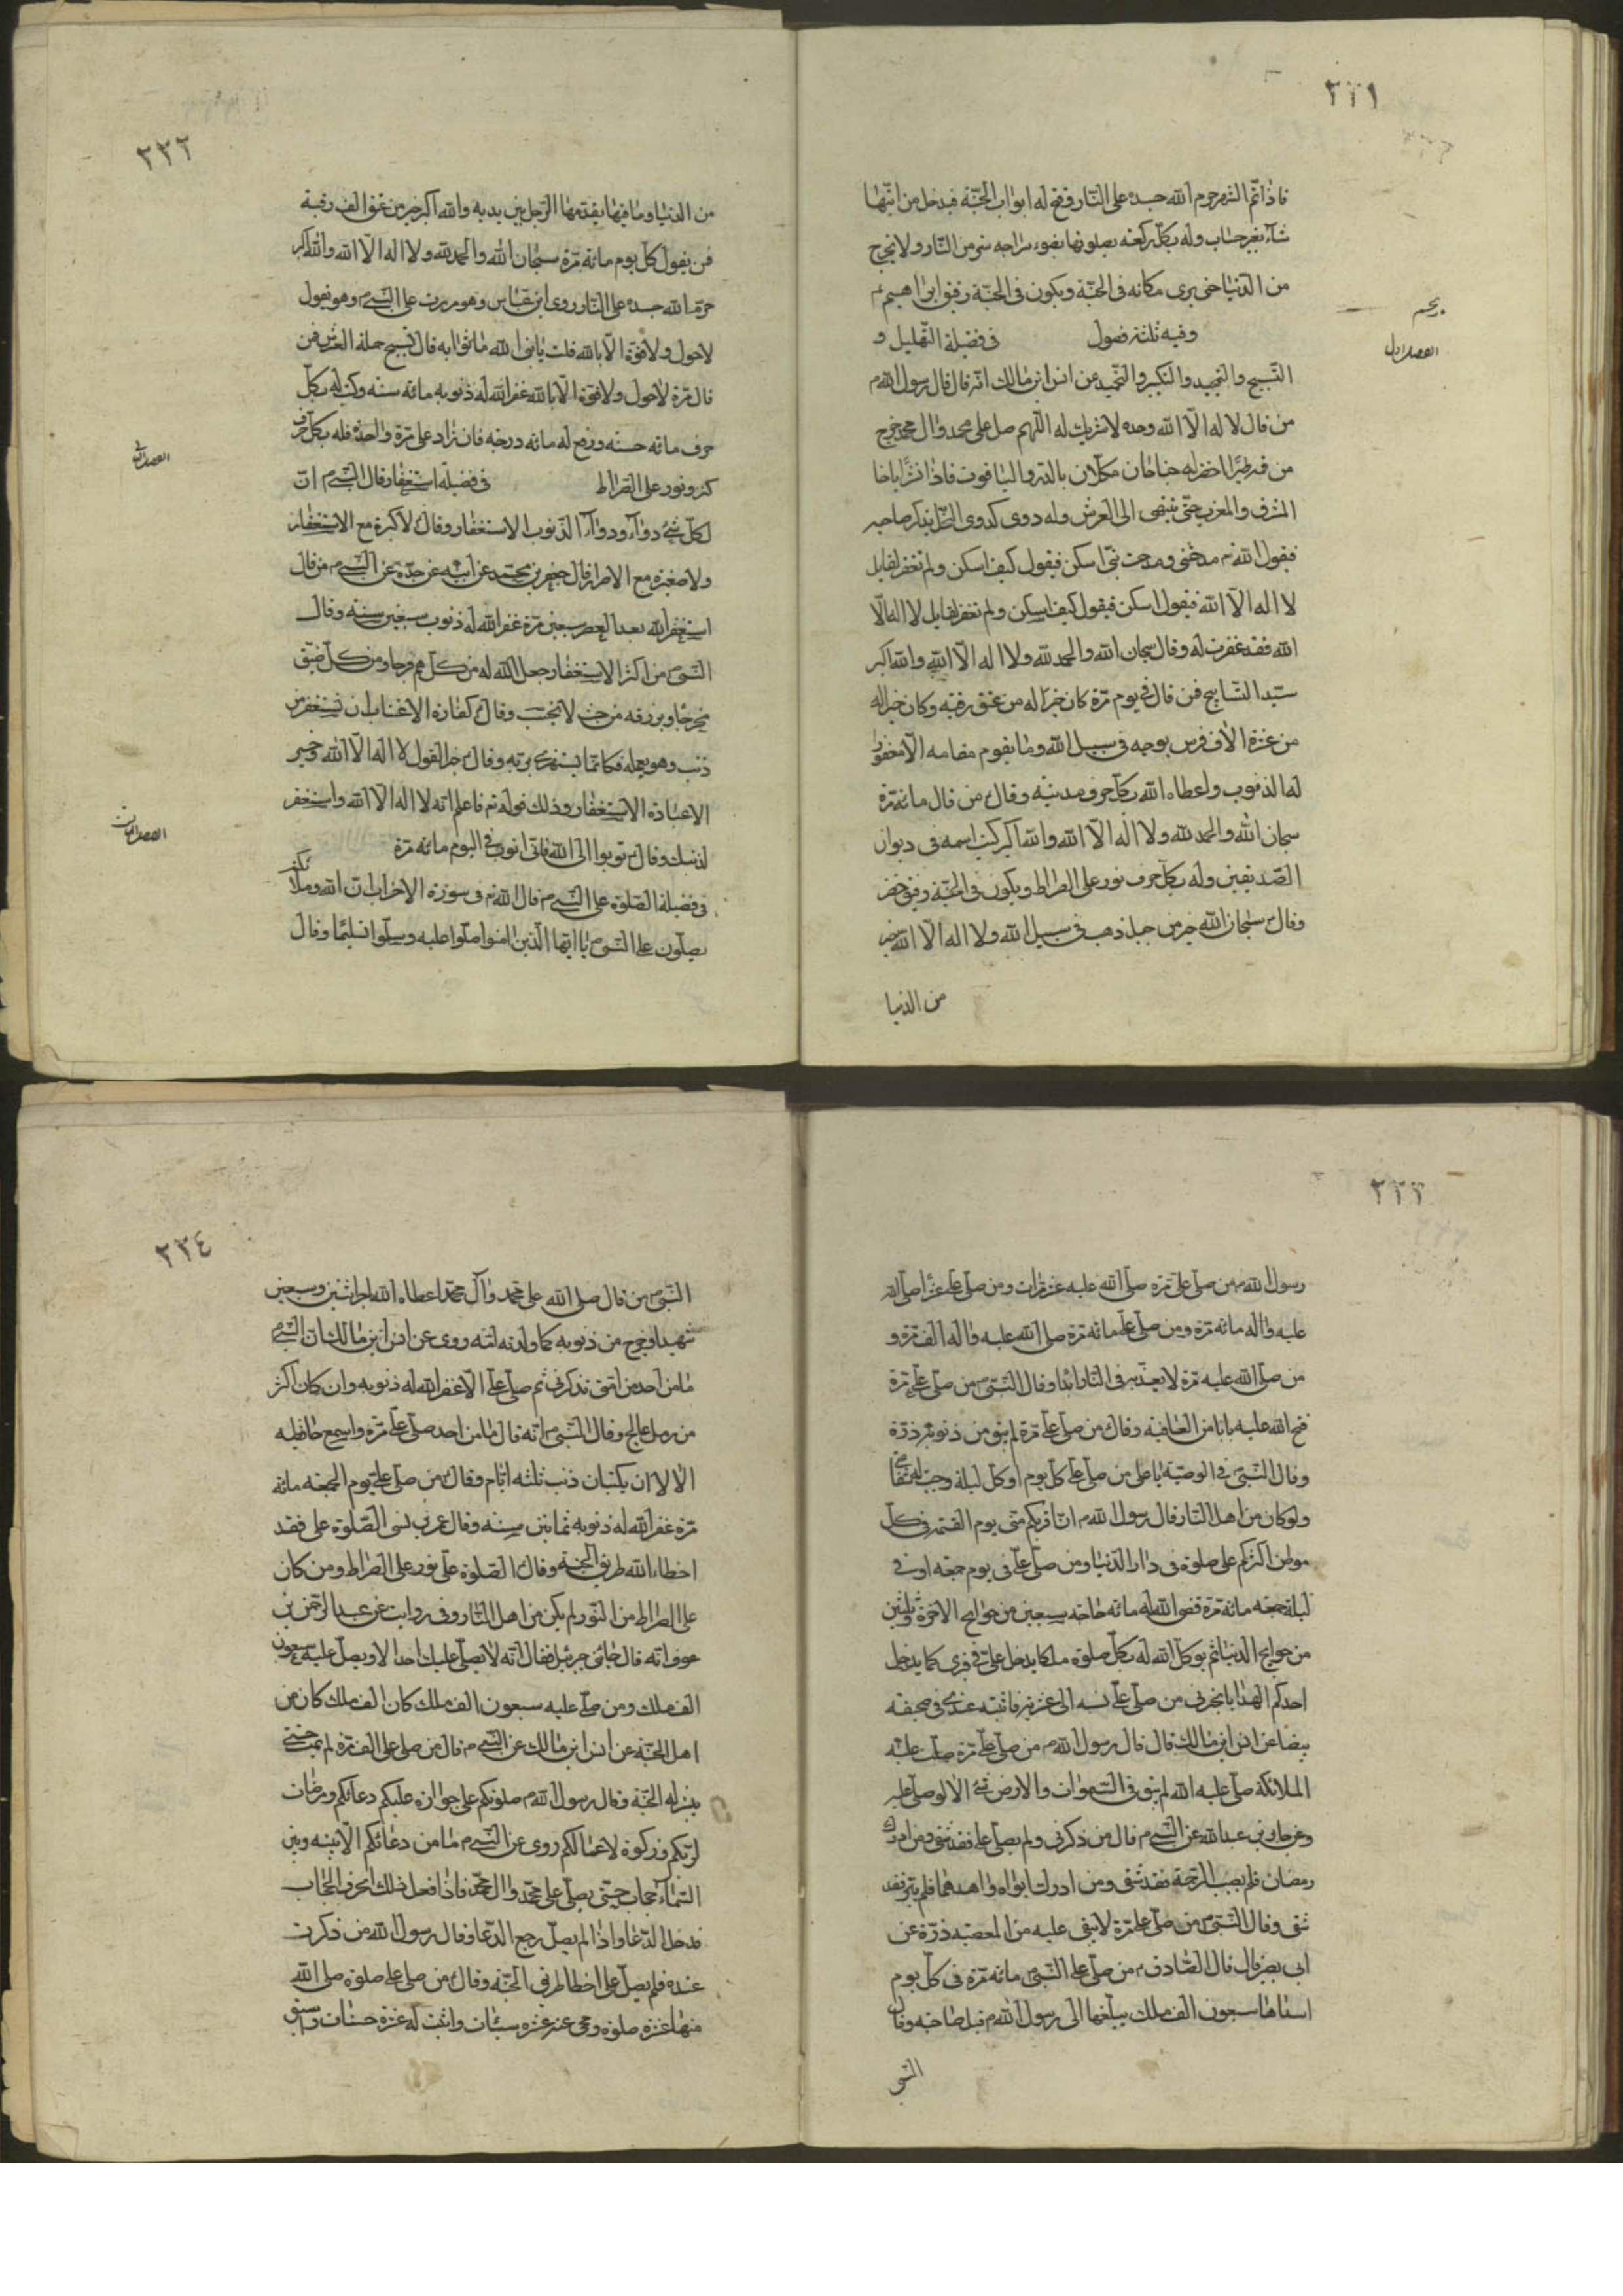 ٢٢١
فاذا اتم الشهر حرم الله جسده على النار وفتح له ابواب الجنة فيدخل من ايها
شاء بغير حساب وله بكل ركعة يصلونها بضوء سراجه من النار ولا يخرج
من الدنيا حتى يرى مكانه فى الجنة ويكون فى الجنة رفيق ابراهيم ع
وفيه ثلثة فصول فى فضيلة التهليل و
الفصل الاول
التسبيح والتمجيد والتكبير والتحميد عن انس ابن مالك انه قال قال رسول الله م
من قال لا اله الا الله وحده لا شريك له اللهم صل على محمد وال محمد خرج
من فيه طيرا اخضر له جناحان مكللان بالدر والياقوت فاذا نشرا
المشرق والمغرب حتى ينتهى الى العرش وله دوى كدوى النحل يذكر صاحبه
فيقول الله تم مدحتنى ومدحت نبيى اسكن فيقول كيف اسكن ولم تغفر لقايل
لا اله الا الله فيقول اسكن فيقول كيف اسكن ولم تغفر لقايل لا اله الا
الله فقد غفرت له وقال سبحان الله والحمد لله ولا اله الا الله والله اكبر
سيد التسابيح فمن قال فى يوم مرة كان خيرا له من عتق رقبة وكان خيرا له
من عشرة الاف فرس يوجه فى سبيل الله وما يقوم مقامه الا مغفورا
له الذنوب واعطاه الله بكل حرف مدينة وقال من قال مائة مرة
سبحان الله والحمد لله ولا اله الا الله والله اكبر كتب اسمه فى ديوان
الصديقين وله بكل حرف نور على الصراط ويكون فى الجنة رفيق خضر
وقال سبحان الله خير من جبل ذهب فى سبيل الله ولا اله الا الله خير
من الدنيا
٢٢٢
من الدنيا وما فيها يقدمها الرجل بين يديه والله اكبر خير من عتق الف رقبة
فمن يقول كل يوم مائة مرة سبحان الله والحمد لله ولا اله الا الله والله اكبر
حرم الله جسده على النار روى ابن عباس وهو مررت على النبى م وهو يقول
لا حول ولا قوة الا بالله قلت يا نبى الله ما ثوابه قال تسبيح حملة العرش فمن
قال مرة لا حول ولا قوة الا بالله غفر الله له ذنوبه مائة سنة وكتب له بكل
حرف مائة حسنة ورفع له مائة درجة فان زاد على مرة واحدة فله بكل حرف
كنز ونور على الصراط فى فضيلة استغفار قال النبى م ان
الفصل الثانى
لكل شئ دواء ودواء الذنوب الاستغفار وقال لا كبيرة مع الاستغفار
ولا صغيرة مع الاصرار قال جعفر بن محمد عن ابيه عن جده عن النبى م من قال
استغفر الله بعد العصر سبعين مرة غفر الله له ذنوب سبعين سنة وقال
النبى م من اكثر الاستغفار جعل الله له من كل هم فرجا ومن كل ضيق
مخرجا ويرزقه من حيث لا يحتسب وقال كفارة الاغتياب ان تستغفر من
ذنب وهو يعمله فكانما يستهزئ بربه وقال خير القول لا اله الا الله وخير
العبادة الاستغفار وذلك قوله تم فاعلم انه لا اله الا الله واستغفر
لذنبك وقال توبوا الى الله فانى اتوب فى اليوم مائة مرة
الفصل الثالث
فى فضيلة الصلوة على النبى م قال الله تم فى سورة الاحزاب ان الله وملائكته
يصلون على النبى يا ايها الذين امنوا صلوا عليه وسلموا تسليما وقال
٢٢٣
رسول الله م من صلى على مرة صلى الله عليه عشر مرات ومن صلى على عشرا صلى الله
عليه واله مائة مرة ومن صلى على مائة مرة صلى الله عليه واله الف مرة و
من صلى الله عليه مرة لا يعذبه فى النار ابدا وقال النبى م من صلى على مرة
فتح الله عليه بابا من العافية وقال من صلى على مرة لم يبق من ذنوبه ذرة
وقال النبى فى الوصية يا على من صلى على كل يوم او كل ليلة وجبت له شفاعتى
ولو كان من اهل النار قال رسول الله م ان اقربكم منى يوم القيمة فى كل
موطن اكثركم على صلوة فى دار الدنيا ومن صلى على فى يوم جمعة او فى
ليلة جمعة مائة مرة قضى الله له مائة حاجة سبعين من حوايج الاخرة وثلثين
من حوايج الدنيا ثم يوكل الله له بكل صلوة ملكا يدخل على فى قبرى كما يدخل
احدكم الهدايا يخبرنى من صلى على نسبه الى عشرته فاثبته عندى فى صحيفة
بيضا عن انس ابن مالك قال قال رسول الله م من صلى على مرة صلت عليه
الملائكة صلى عليه الله لم يبق فى السموات والارض شئ الا لو صلى عليه
وعن جابر بن عبد الله عن النبى م قال من ذكرنى ولم يصل على فقد شقى ومن ادرك
رمضان فلم يصب الرحمة فقد شقى ومن ادرك ابواه او احدهما فلم يبر فقد
شقى وقال النبى م من صلى على مرة لا يبقى عليه من المعصية ذرة عن
ابى بصير قال قال الصادق م من صلى على النبى مائة مرة فى كل يوم
سبعون الف ملك يبلغها الى رسول الله م قبل صاحبه وقال
النبى
٢٢٤
النبى م من قال صلى الله على محمد وال محمد اعطاه الله اجر اثنين وسبعين
شهيدا وخرج من ذنوبه كما ولدته امه وروى عن انس ابن مالك ان النبى م
ما من احد من امتى يذكرنى ثم صلى على الا غفر الله له ذنوبه وان كان اكثر
من رمل عالج وقال النبى م انه قال ما من احد صلى على مرة واسمع حافظيه
الا لا ان يكتبان ذنب ثلثة ايام وقال من صلى على يوم الجمعة مائة
مرة غفر الله له ذنوبه ثمانين سنة وقال من نسى الصلوة على فقد
اخطاء الله طريق الجنة وقال الصلوة على نور على الصراط ومن كان
على الصراط من النور لم يكن من اهل النار وفى رواية عن عبد الرحمن بن
عوف انه قال جائنى جبرئيل فقال انه لا يصلى عليك احد الا ويصلى عليه سبعون
الف ملك ومن صلى عليه سبعون الف ملك كان الف ملك كان من
اهل الجنة عن انس ابن مالك عن النبى م قال من صلى على الف مرة لم يمت حتى
يبشر له الجنة وقال رسول الله م صلوتكم على جوازة عليكم دعائكم ومرضات
لربكم وزكوة لاعمالكم روى عن النبى م ما من دعائكم الا بينه وبين
السماء حجاب حتى يصلى على محمد وال محمد فاذا فعل ذلك انخرق الحجاب
فدخل الدعا واذا لم يصل رجع الدعا وقال رسول الله من ذكرت
عنده فلم يصل على اخطا طريق الجنة وقال من صلى على صلوة صلى الله
منها عشرة صلوة ومحى عنه عشرة سيئات واثبت له عشرة حسنات